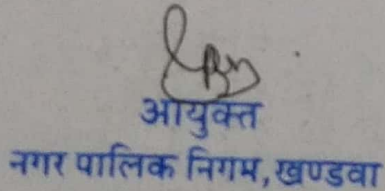 आयुक्त
नगर पालिक निगम, खण्डवा